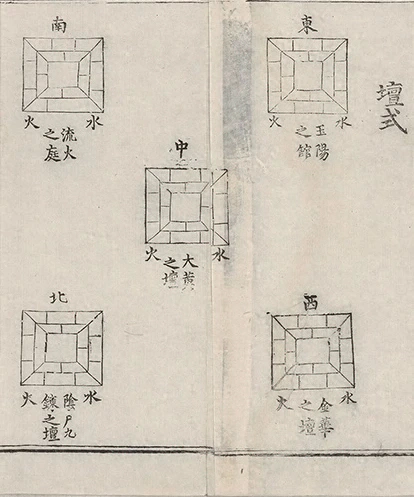 壇式
東
水
火
玉陽
之館
西
水
火
金華
之壇
中
水
火
大黃
之壇
南
水
火
流火
之庭
北
水
火
陰尸九
鍊之壇